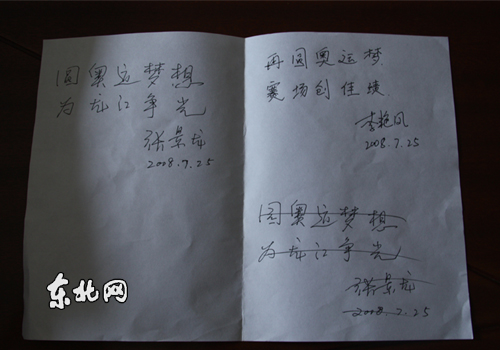 圆奥运梦想
为龙江争光
张景龙
2008.7.25
再圆奥运梦
赛场创佳绩
李艳凤
2008.7.25
圆奥运梦想
为龙江争光
张景龙
2008.7.25
东北网